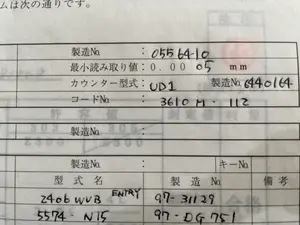 ムは次の通りです。
製造No. : 0556410
最小読み取り値 : 0.00 05 mm
カウンター型式 : UD1 製造No. 6440164
コードNo. : 3610M-112
製造No.
製造No. : キーNo.
型式名 製造No. 備考
2406WVB ENTRY 97-31129
5574-N15 97-DG751